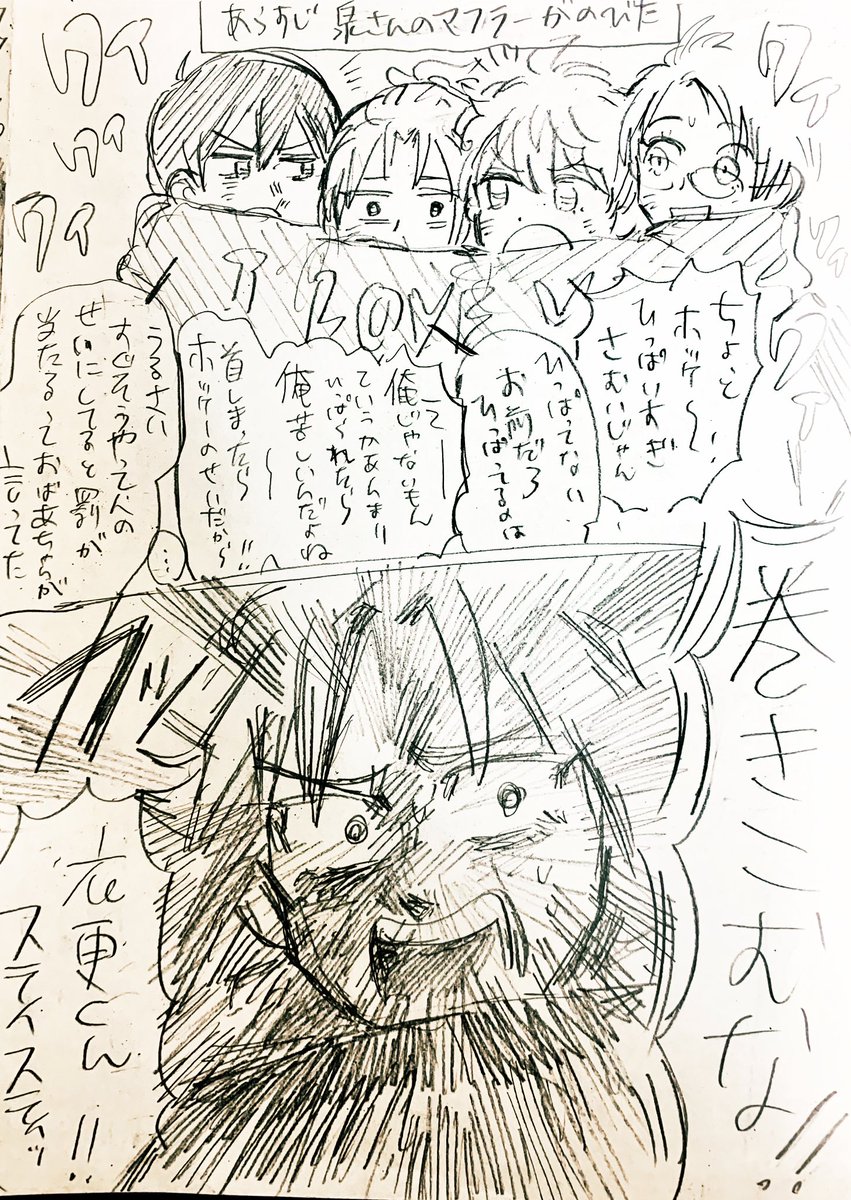 あらすじ 泉さんのマフラーがのびた
ワイ
ワイ
ワイ
ワイ
ワイ
ワイ
I LOVE
ちょっと
ホッケ〜、
ひっぱりすぎ
さむいじゃん
ひっぱってない、
お前だろ
ひっぱってるのは
って
俺じゃないもん
ていうかあんまり
ひっぱられたら
俺苦しいんだよね
〜
首しまったら
ホッケーのせいだから!!
うるさい
すぐそうやって人の
せいにしてると罰が
当たるっておばあちゃんが
言ってた
…
巻きこむな!!
衣更くん!!
スティスティッ